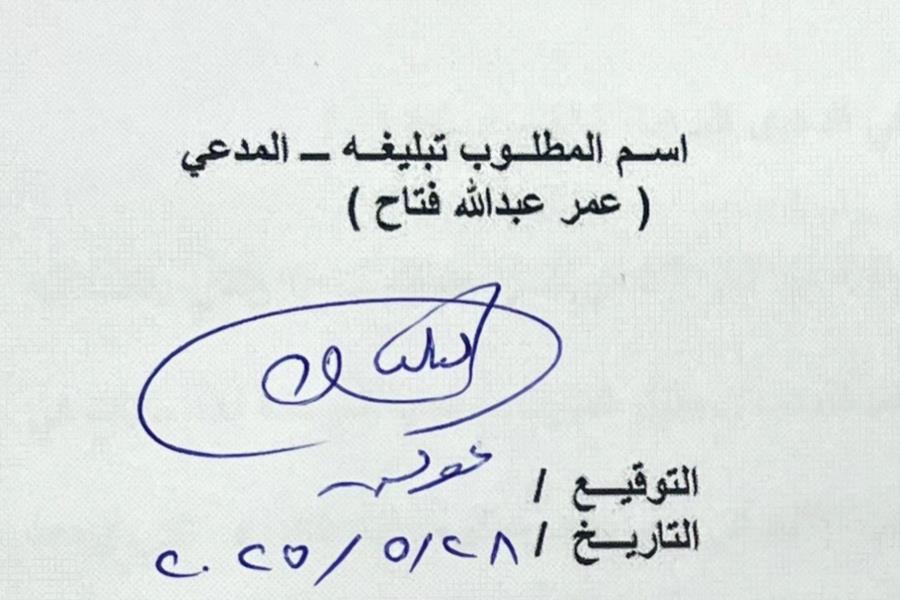 اسم المطلوب تبليغه ــ المدعي
( عمر عبدالله فتاح )
التوقيع /
التاريخ / ٢٨/٥/٢٠٢٥